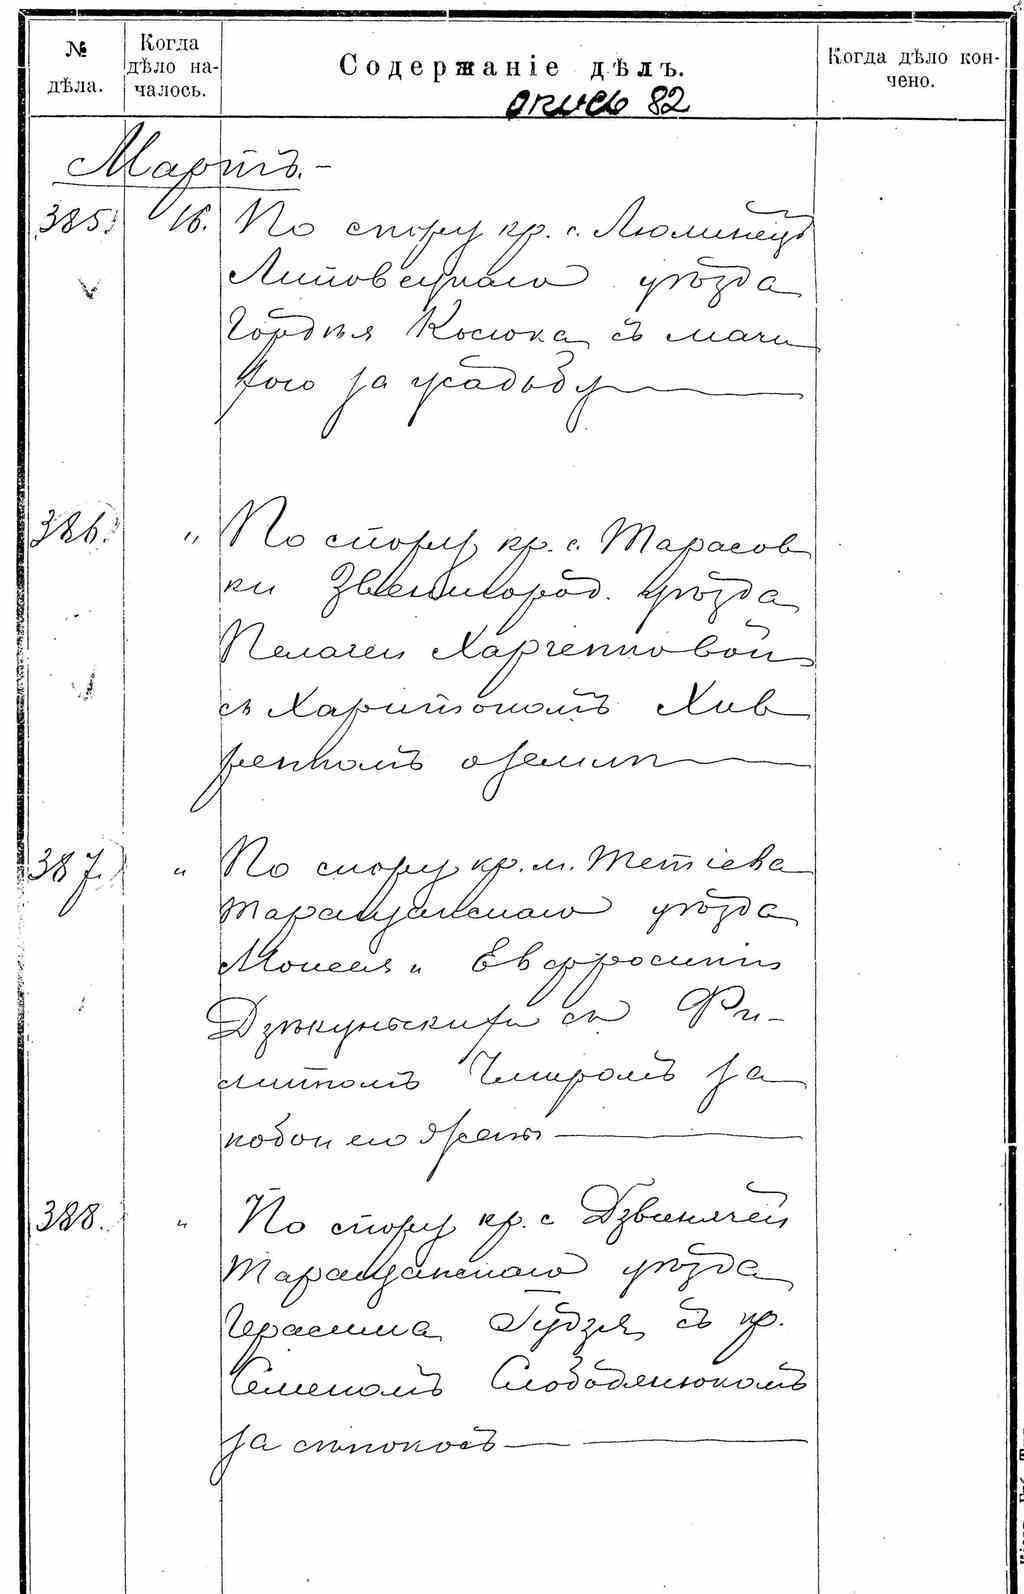 № дѣла.
Когда дѣло на-
чалось.
Содержаніе дѣлъ.
Когда дѣло кон-
чено.
опись 82
Мартъ.-
385. 16. По спору кр. с. Люлинецъ
Липовецкаго уѣзда
Гордѣя Косюка съ мачи
хою за усадьбу
386. " По спору кр. с. Тарасов
ки Звенигород. уѣзда
Пелагеи Харченковой
съ Харитономъ Хив
ренкомъ о землѣ
387. " По спору кр. м. Тетіева
Таращанскаго уѣзда
Моисея и Евфросиніи
съ Фи-
липпомъ за
побои его жены
388. " По спору кр. с Дзвенячей
Таращанскаго уѣзда
Герасима Гудзя съ кр.
Семеномъ Слободянюкомъ
за сѣнокосъ